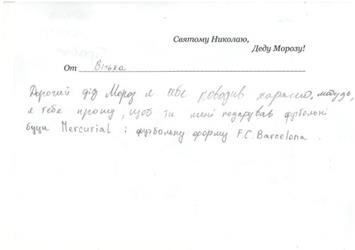 Святому Николаю,
Деду Морозу!
От Вітька
Дорогий дід Мороз я себе поводив харашо,
я тебе прошу, щоб ти мені подарував футбольні
буци Mercurial і футбольну форму F.C. Barcelona.